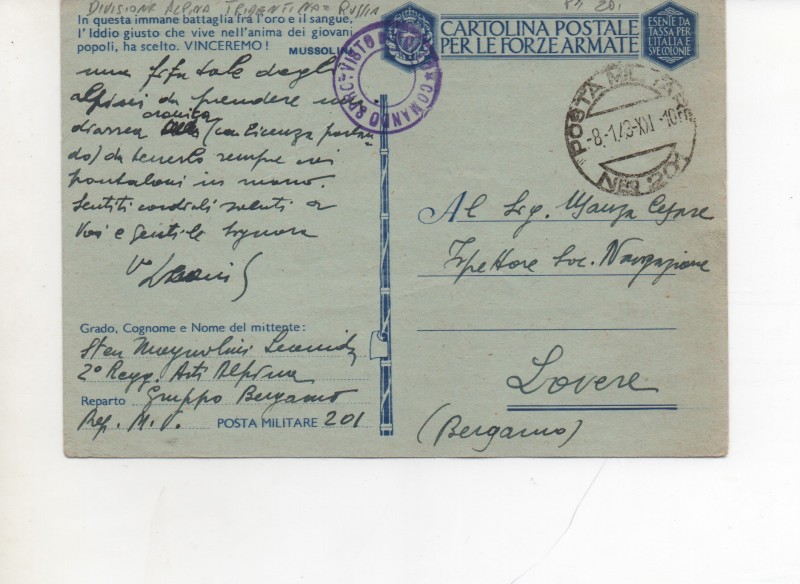 DIVISIONE ALPINA TRIDENTINA = RUSSIA
PM 201
In questa immane battaglia fra l'oro e il sangue,
l'Iddio giusto che vive nell'anima dei giovani
popoli, ha scelto. VINCEREMO! MUSSOLINI
una fifa tale degli
alpini da prendere una
diarrea cronica (con licenza parlan
do) da tenerlo sempre coi
pantaloni in mano.
Sentiti cordiali saluti a
Voi e gentile Signora
Grado, Cognome e Nome del mittente:
Sten Magnolini Leonida
2° Regg. Art. Alpina
Reparto Gruppo Bergamo
Rep. M. V. POSTA MILITARE 201
COMANDO VISTO
CARTOLINA POSTALE
PER LE FORZE ARMATE
ESENTE DA
TASSA PER
L'ITALIA E
SUE COLONIE
POSTA MILITARE
-8.-1.43-XXI-10
NR 201
Al Sig. Cesare
Ispettore Soc. Navigazione
Lovere
(Bergamo)